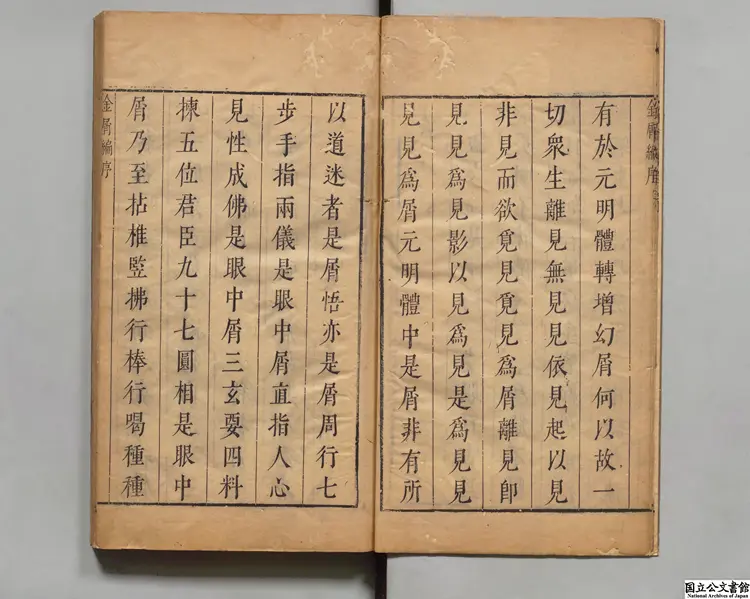 金屑編序
有於元明體轉增幻屑何以故一
切衆生離見無見見依見起以見
非見而欲覓見覓見爲屑離見卽
見見爲見影以見爲見是爲見見
見見爲屑元明體中是屑非有所
以道迷者是屑悟亦是屑周行七
步手指兩儀是眼中屑直指人心
見性成佛是眼中屑三玄要四料
揀五位君臣九十七圓相是眼中
屑乃至拈椎竪拂行棒行喝種種
金屑編序
国立公文書館
National Archives of Japan